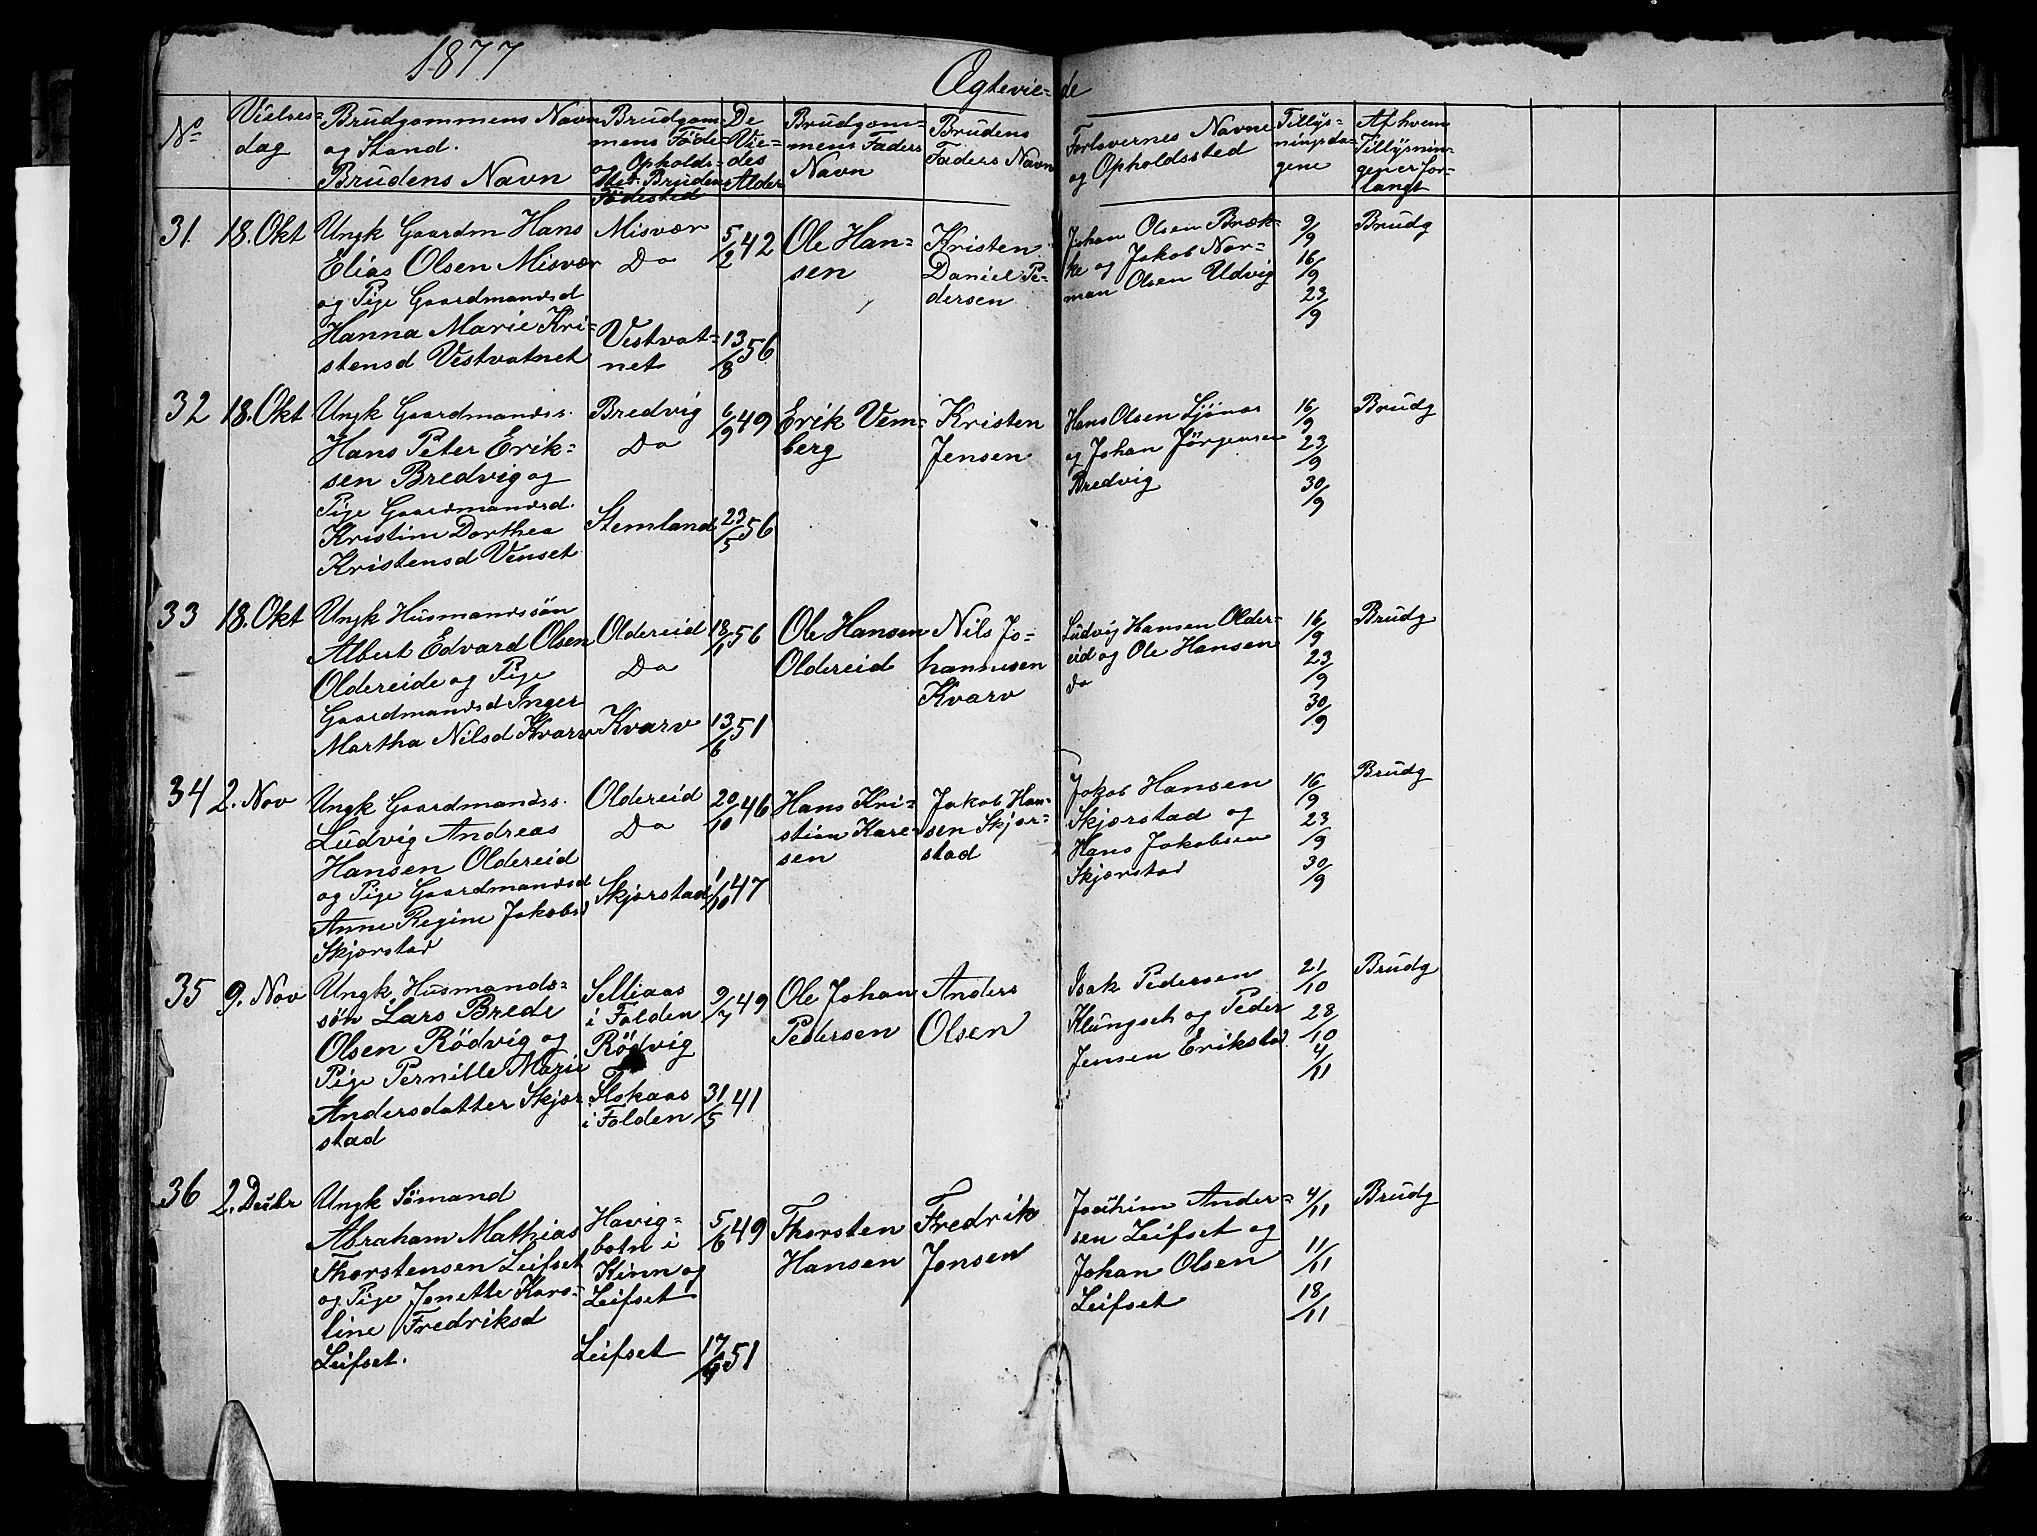 1877
Ægtevie-de
No
Vielses-
dag
Brudgommens Navn
og Stand.
Brudens Navn
Brudgom-
mens Føde
og Opholds-
sted. Brudens
Födested
De
Vie-
des
Alder
Brudgom-
mens Faders
Navn
Brudens
Faders Navn
Forlovernes Navne
og Opholdssted
Tillys-
ningsda-
gene
Af hvem
Tillysnin-
gen er for-
langt
31.
18. Okt
Ungk Gaardm Hans
Elias Olsen Misvær
og Pige Gaardmandsd
Hanna Marie Kri-
stensd Vestvatnet
Misvær
Do
Vestvat-
net
5/2 42
13/8 56
Ole Han-
sen
Kristen
Daniel Pe-
dersen
Johan Olsen Bræk-
ke og Jakob Nor-
man Olsen Udvig
9/9
16/9
23/9
Brudg
32
18. Okt
Ungk Gaardmandss.
Hans Peter Erik-
sen Bredvig og
Pige Gaardmandsd.
Kristine Dorthea
Kristensd Venset
Bredvig
Do
Stemland
6/9 49
23/5 56
Erik Vem-
berg
Kristen
Jensen
Hans Olsen Ljönes
og Johan Jörgensen
Bredvig
16/9
23/9
30/9
Brudg
33
18. Okt
Ungk Husmandssön
Albert Edvard Olsen
Oldereide og Pige
Gaardmandsd Inger
Martha Nilsd Kvarv
Oldereid
Do
Kvarv
18/1 56
13/6 51
Ole Hansen
Oldereid
Nils Jo-
hannesen
Kvarv
Ludvig Hansen Older-
eid og Ole Hansen
do
16/9
23/9
30/9
Brudg
34
2. Nov
Ungk Gaardmandss.
Ludvig Andreas
Hansen Oldereid
og Pige Gaardmandsd
Anne Regine Jakobsd
Skjærstad
Oldereid
Do
Skjerstad
20/10 46
1/10 47
Hans Kri-
stian Kare-
sen
Jakob Han-
sen Skjer-
stad
Jakob Hansen
Skjærstad og
Hans Jakobsen
Skjærstad
16/9
23/9
30/9
Brudg
35
9. Nov
Ungk Husmands-
sön Lars Brede
Olsen Rödvig og
Pige Pernille Marie
Andersdatter Skjer-
stad
Selliaas
i Folden
Rödvig
i Folden
9/7 49
31/5 41
Ole Johan
Pedersen
Anders
Olsen
Isak Pedersen
Klungset og Peder
Jensen Erikstad
21/10
28/10
4/11
Brudg
36
2. Decbr
Ungk Sömand
Abraham Mathias
Thorstensen Leifset
og Pige Jonette Karo-
line Fredriksd
Leifset.
Havig-
botn i
Kinn og
Leifset
Leifset
5/6 49
17/9 51
Thorsten
Hansen
Fredrik
Jonsen
Joachim Ander-
sen Leifset og
Johan Olsen
Leifset
4/11
11/11
18/11
Brudg